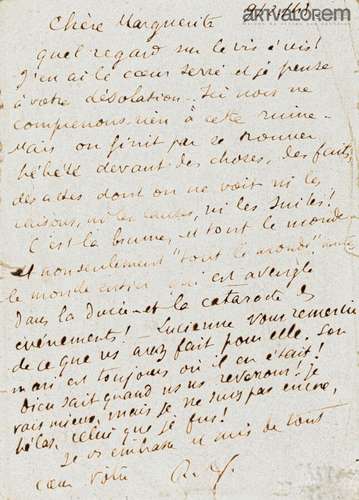 ARTVALOREM
Chère Marguerite
quel regard sur le vis à vis!
J'en ai le cœur serré et je pense
à votre désolation. Ici nous ne
comprenons rien à cette ruine.
Mais on finit par se trouver
hébété devant des choses, des faits,
des actes dont on ne voit ni les
raisons, ni les causes, ni les suites!
C'est la brume, et tout le monde
et non seulement "tout le monde" mais
le monde entier qui est aveugle
dans la et la cataracte des
événements! - Lucienne vous remercie
de ce que vs avez fait pour elle. Son
mari est toujours où il en était!
Dieu sait quand ns vs reverrons! Je
vais mieux, mais je ne suis pas encore,
hélas, celui que je fus!
Je vs embrasse et suis de tout
cœur vôtre